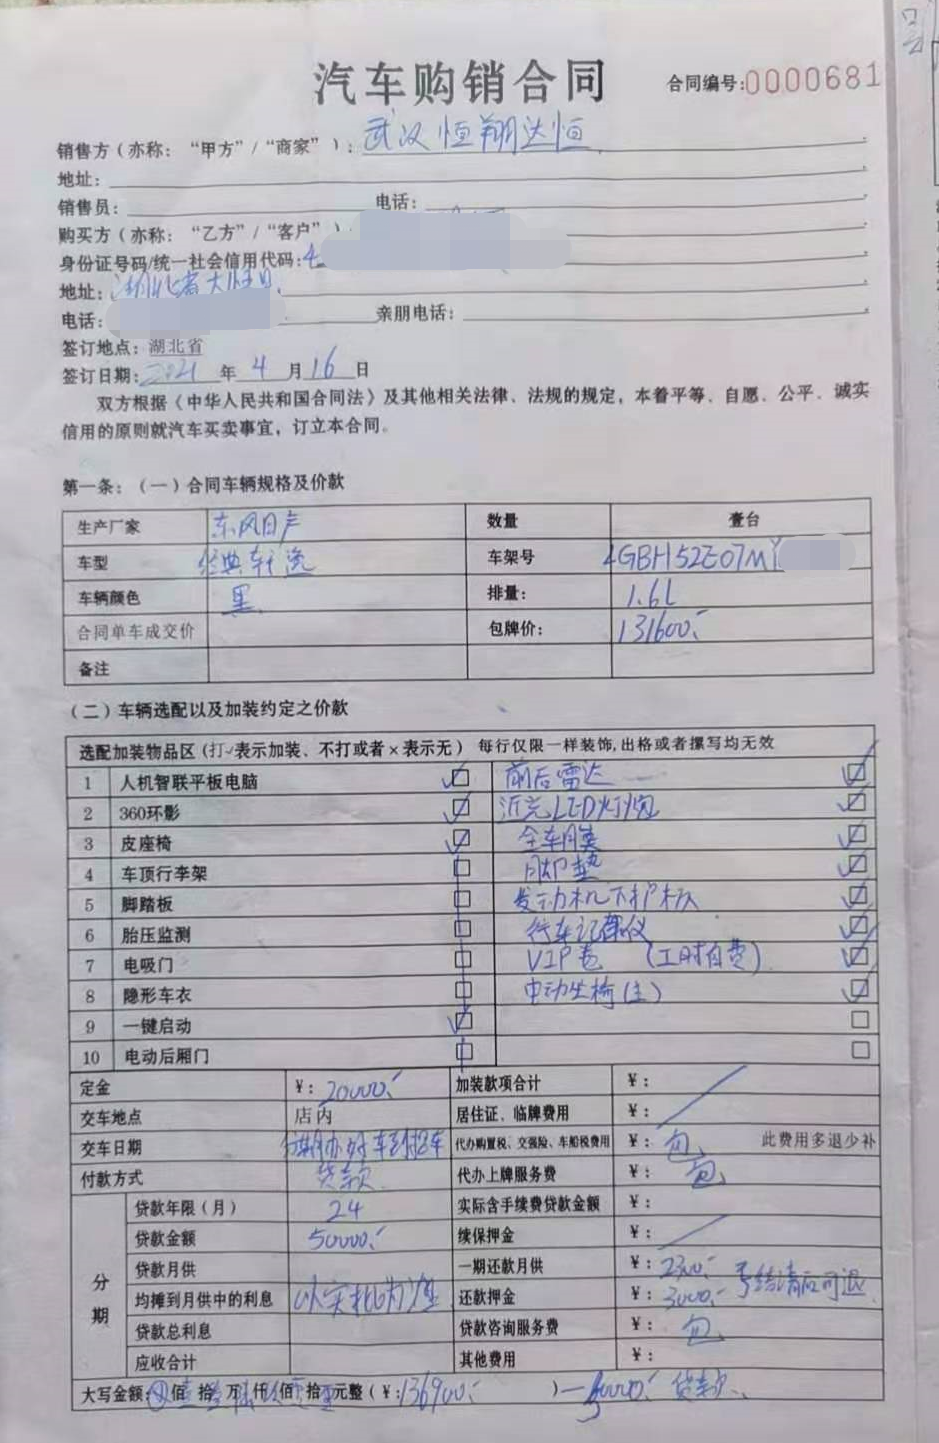 汽车购销合同
合同编号:0000681
销售方(亦称:“甲方”/“商家”):武汉恒翔达恒
地址:
销售员: 电话:
购买方(亦称:“乙方”/“客户”)
身份证号码/统一社会信用代码:4
地址:湖北省大悟县
电话: 亲朋电话:
签订地点:湖北省
签订日期:2021年4月16日
双方根据《中华人民共和国合同法》及其他相关法律、法规的规定,本着平等、自愿、公平、诚实
信用的原则就汽车买卖事宜,订立本合同。
第一条:(一)合同车辆规格及价款
生产厂家 东风日产 数量 壹台
车型 经典轩逸 车架号 LGBH52E07MY
车辆颜色 黑 排量: 1.6L
合同单车成交价 包牌价: 131600
备注
(二)车辆选配以及加装约定之价款
选配加装物品区(打✓表示加装、不打或者×表示无) 每行仅限一样装饰,出格或者撰写均无效
1 人机智联平板电脑 前后雷达
2 360环影 近光LED灯炮
3 皮座椅 全车膜
4 车顶行李架 脚垫
5 脚踏板 发动机下护板
6 胎压监测 行车记录仪
7 电吸门 VIP卷 (工时自费)
8 隐形车衣 电动坐椅(主)
9 一键启动
10 电动后厢门
定金 ¥:20000 加装款项合计 ¥:
交车地点 店内 居住证、临牌费用 ¥:
交车日期 代办购置税、交强险、车船税费用 ¥:包 此费用多退少补
付款方式 贷款 代办上牌服务费 包
分期 贷款年限(月) 24 实际含手续费贷款金额 ¥:
贷款金额 50000 续保押金 ¥:
贷款月供 一期还款月供 ¥:2300
均摊到月供中的利息 以实批为准 还款押金 ¥:3000 结清后可退
贷款总利息 贷款咨询服务费 ¥:包
应收合计 其他费用 ¥:
大写金额: 佰 拾 万 仟 佰 拾 元整(¥:136900)—50000 贷款